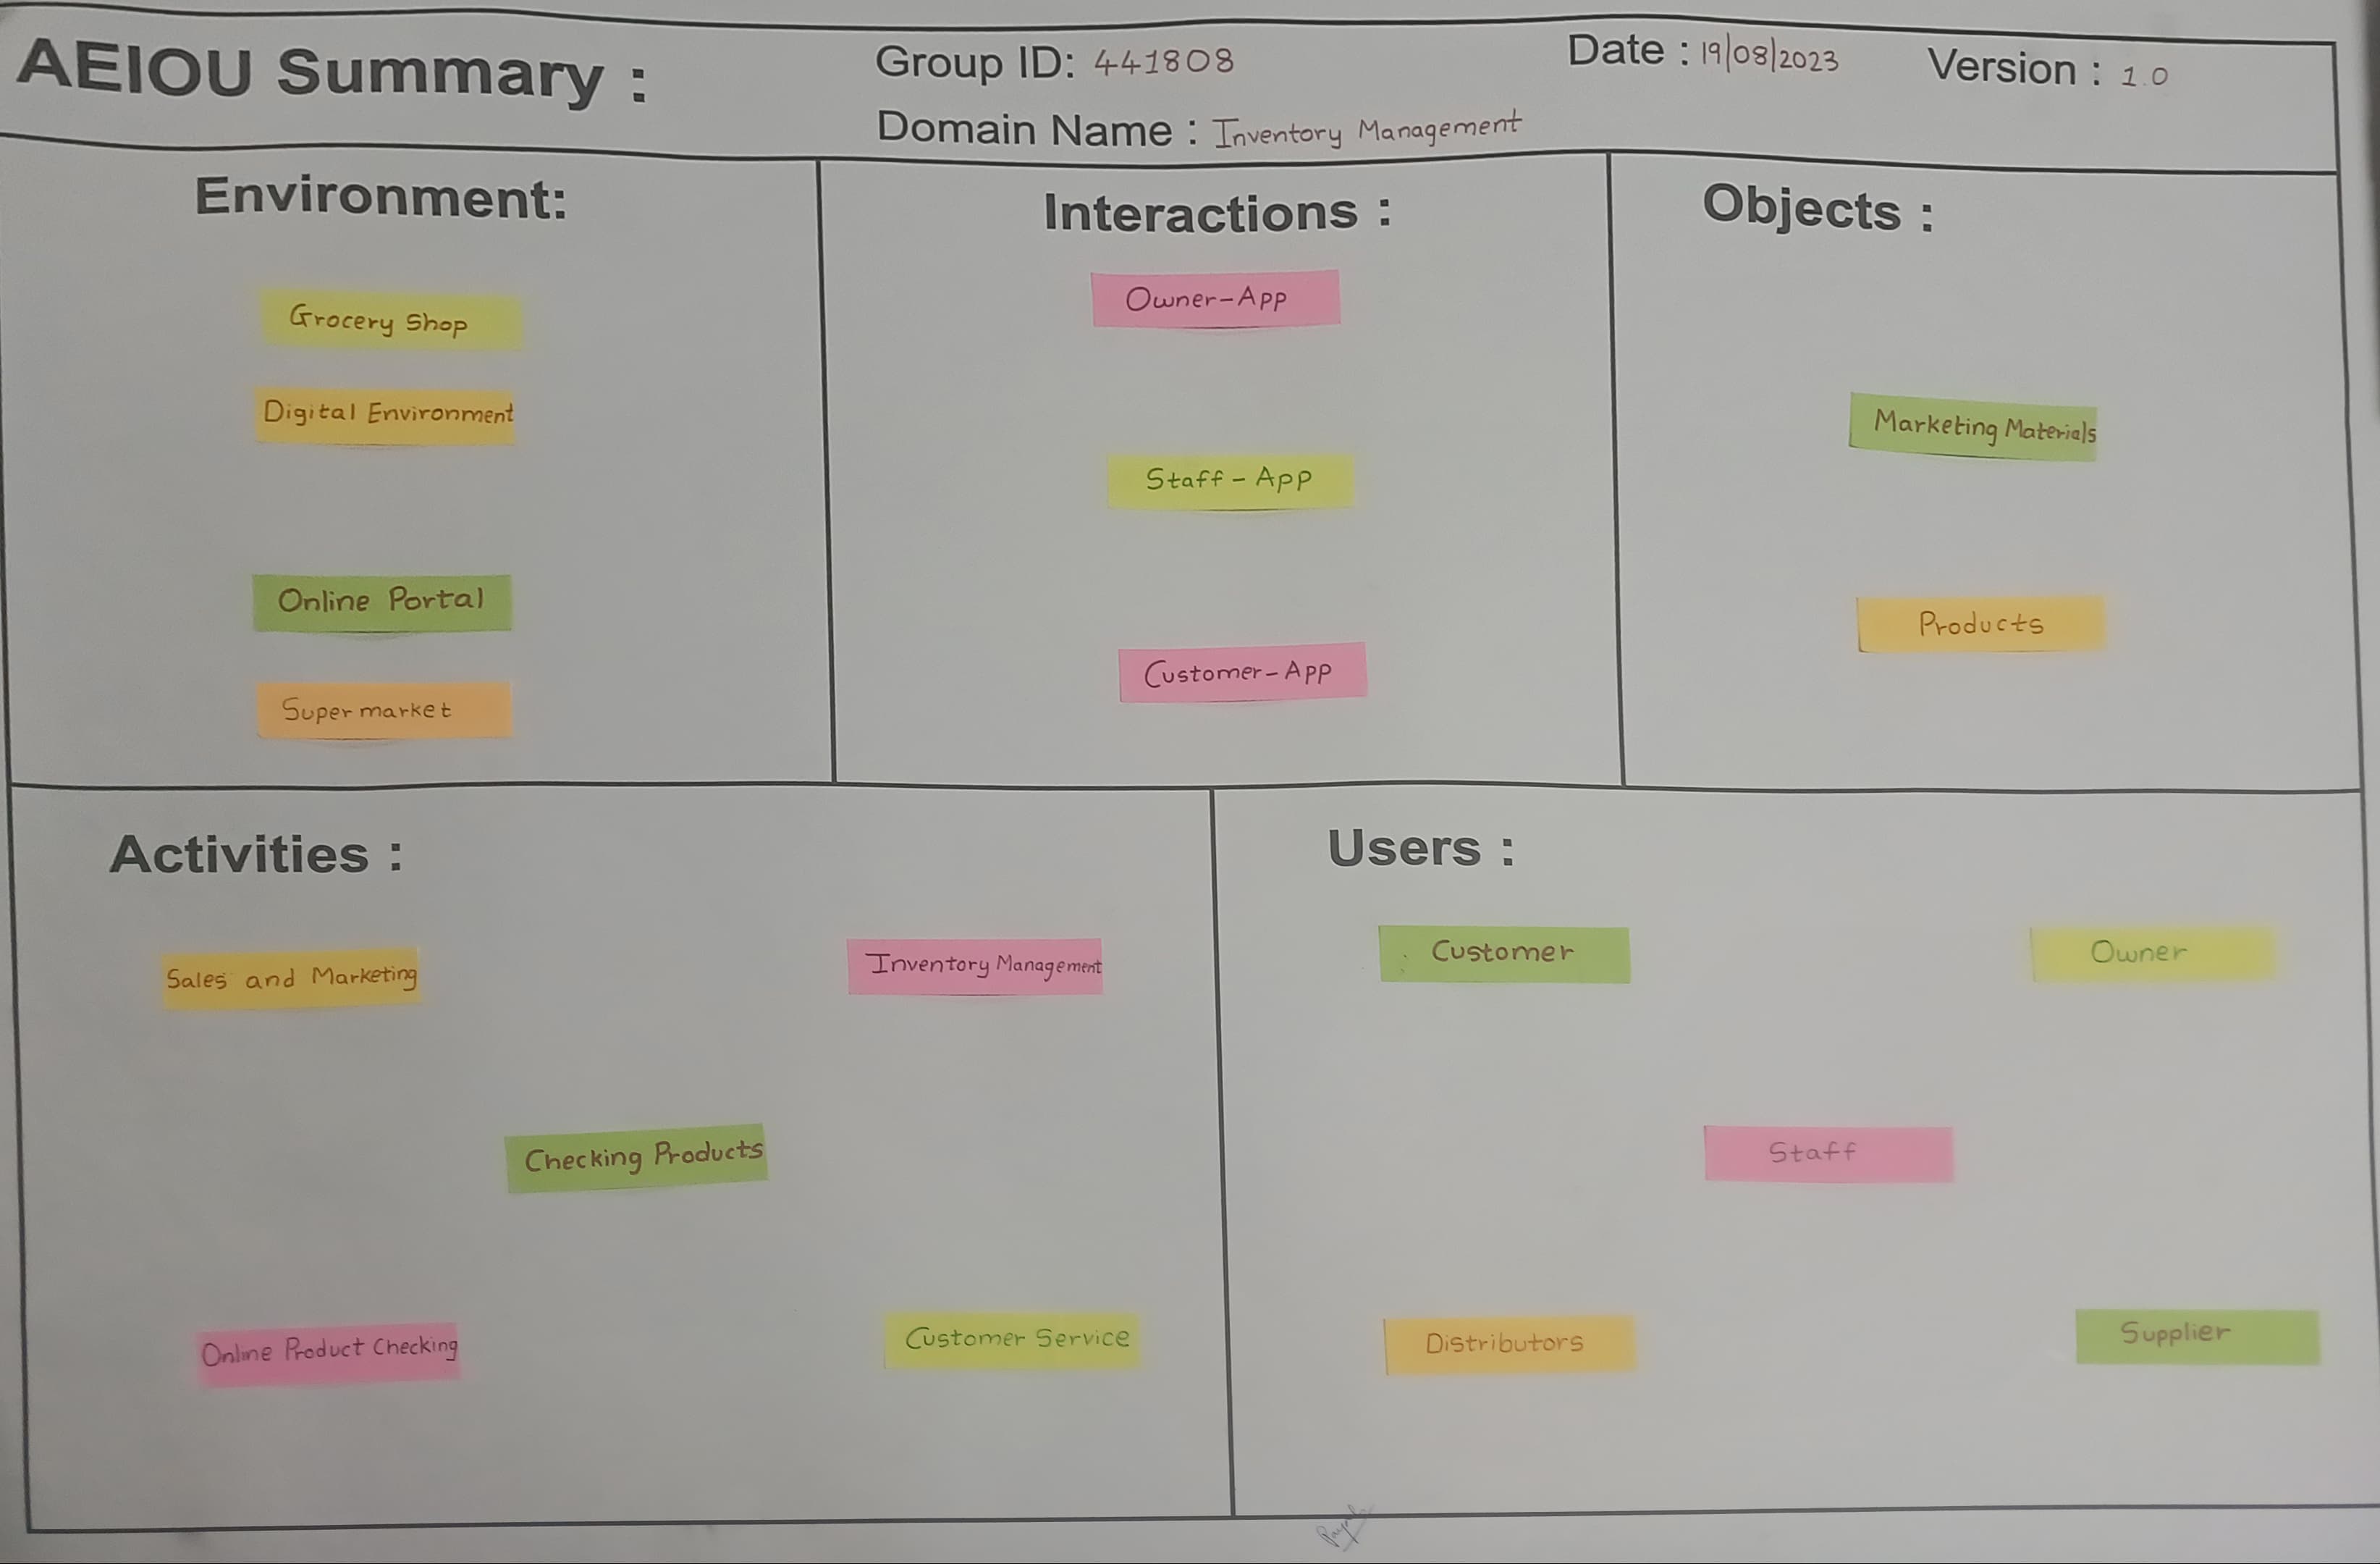 AEIOU Summary :
Group ID: 441808
Date : 19/08/2023
Version : 1.0
Domain Name : Inventory Management
Environment:
Grocery Shop
Digital Environment
Online Portal
Super market
Interactions :
Owner-App
Staff - App
Customer-App
Objects :
Marketing Materials
Products
Activities :
Sales and Marketing
Inventory Management
Checking Products
Online Product Checking
Customer Service
Users :
Customer
Owner
Staff
Distributors
Supplier